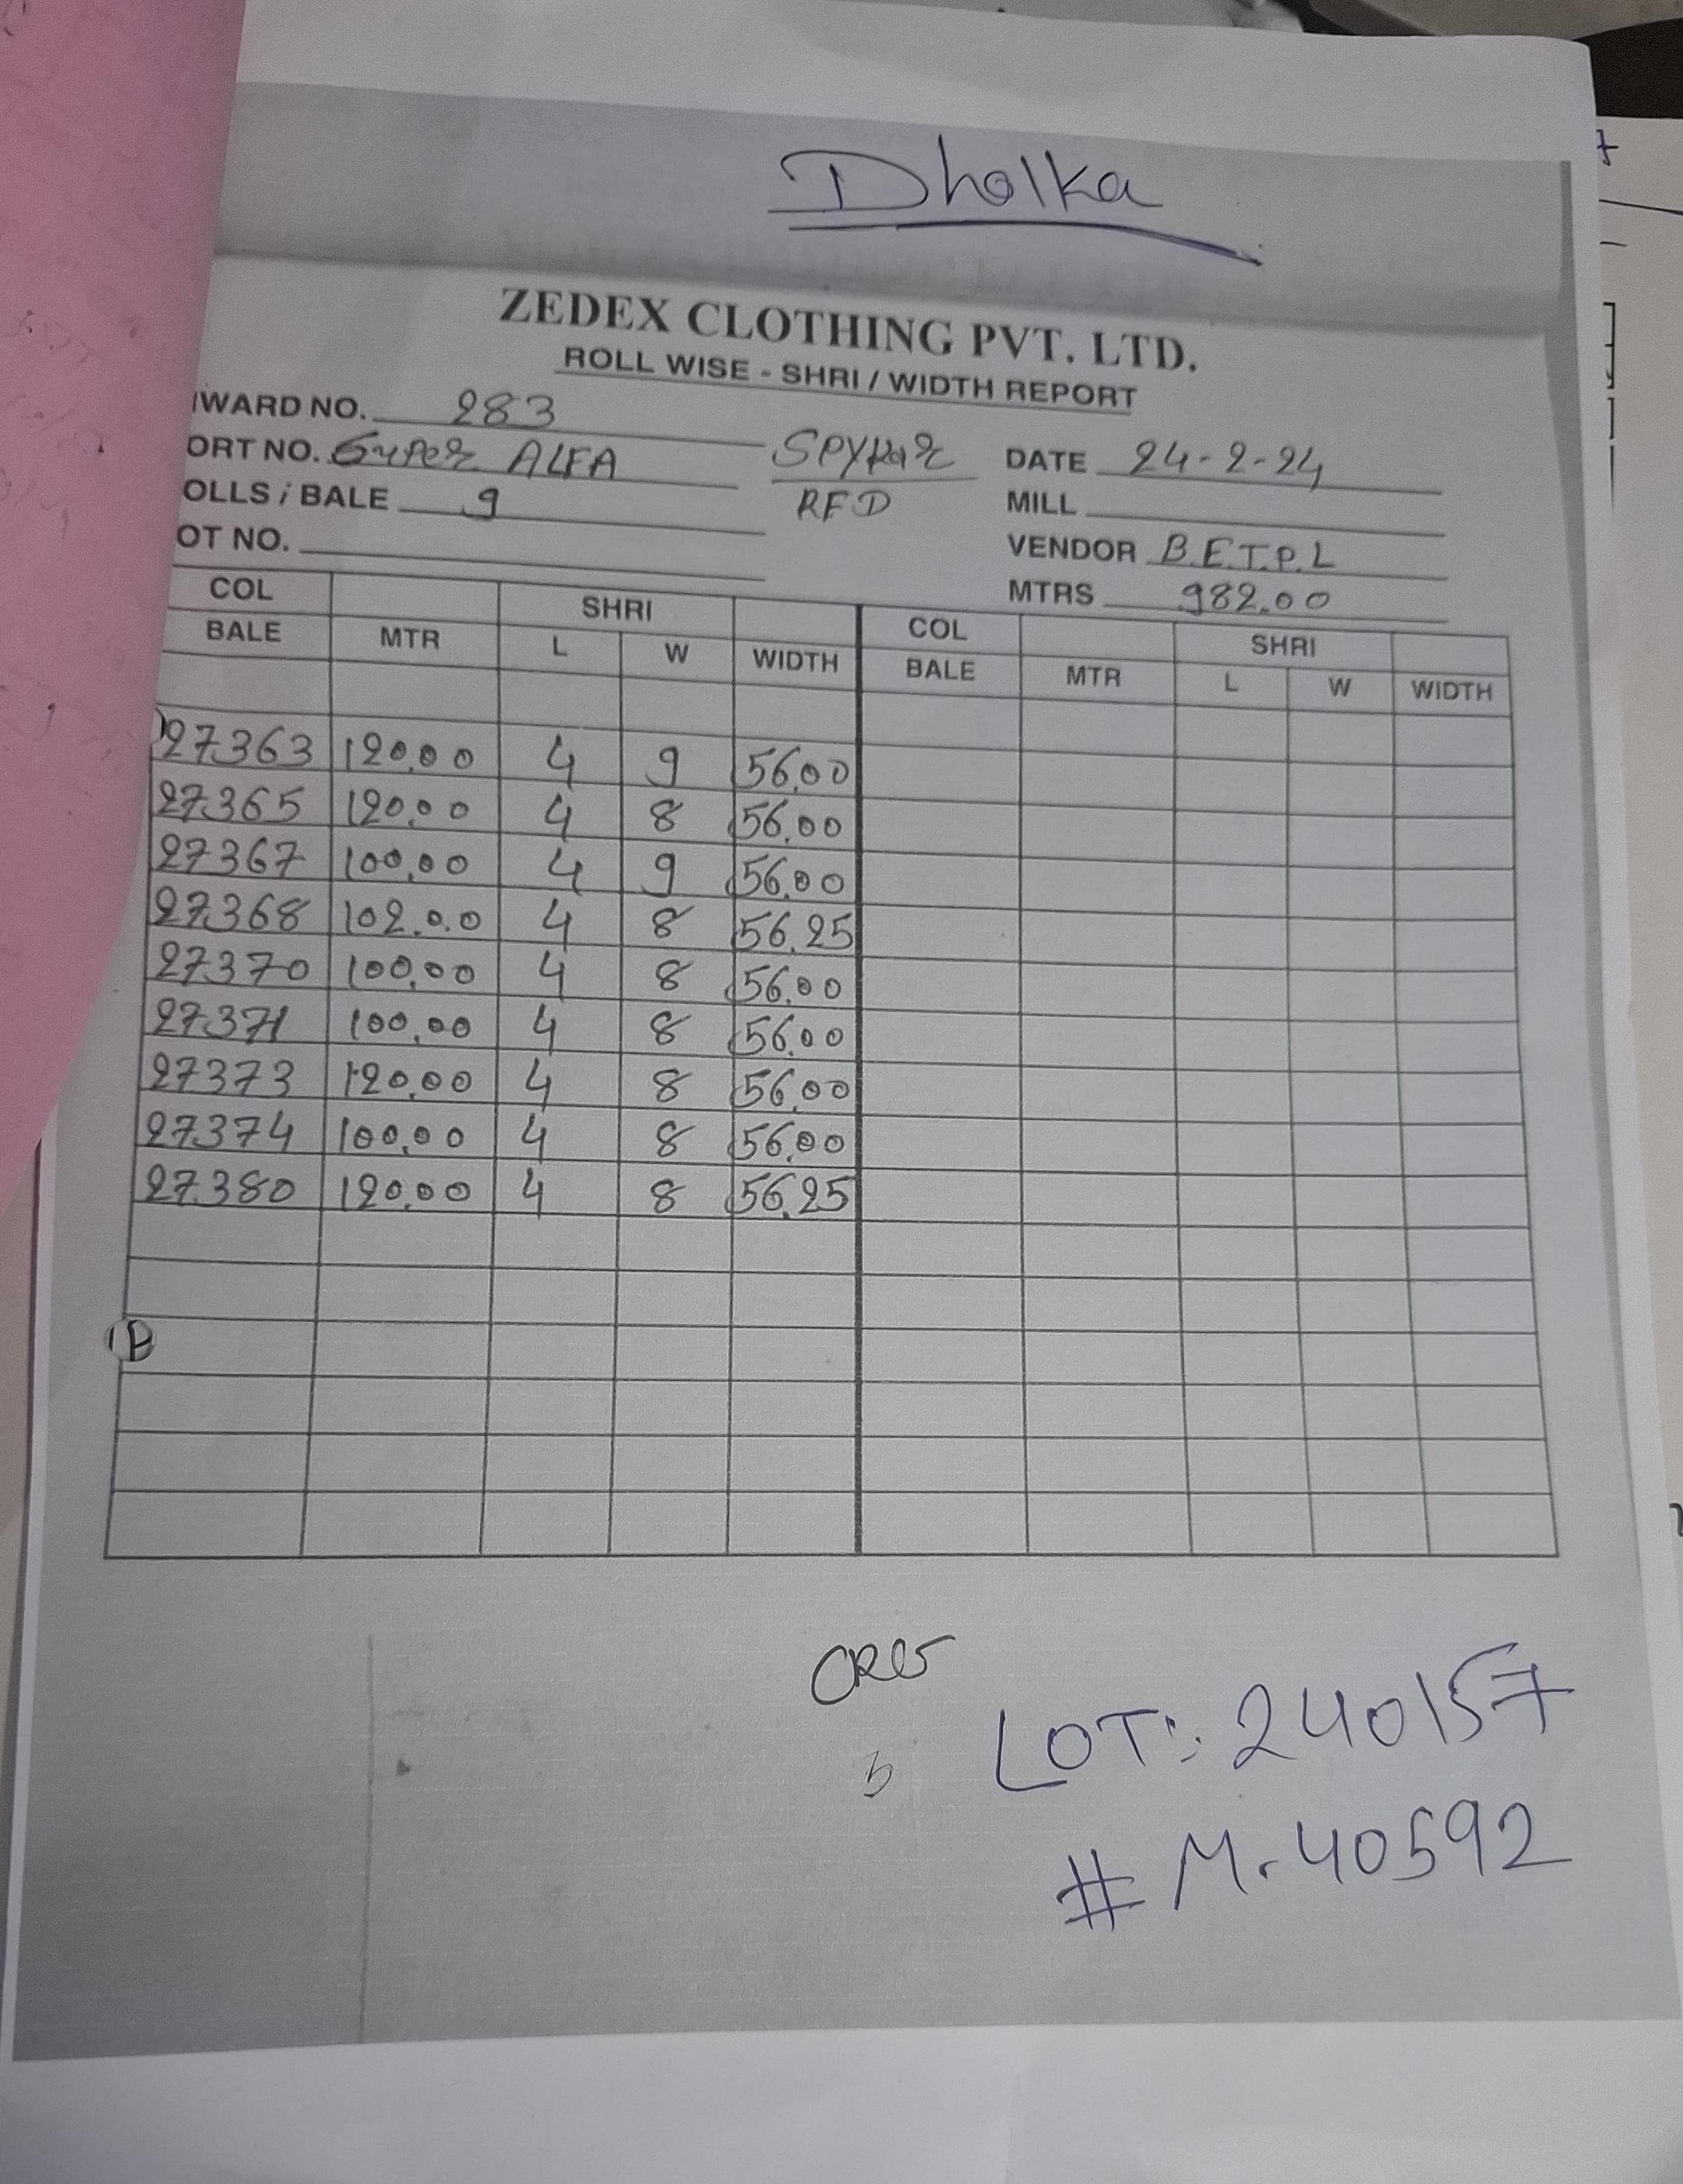 Dholka
ZEDEX CLOTHING PVT. LTD.
ROLL WISE - SHRI / WIDTH REPORT
WARD NO. 283
ORT NO. Super ALFA SPYKAR DATE 24-2-24
OLLS / BALE 9 RFD MILL
OT NO. VENDOR B.E.T.P.L
MTRS 982.00
COL SHRI COL SHRI
BALE MTR L W WIDTH BALE MTR L W WIDTH
27363 120.00 4 9 56.00
27365 120.00 4 8 56.00
27367 100.00 4 9 56.00
27368 102.00 4 8 56.25
27370 100.00 4 8 56.00
27371 100.00 4 8 56.00
27373 120.00 4 8 56.00
27374 100.00 4 8 56.00
27380 120.00 4 8 56.25
LOT: 240157
# M. 40592